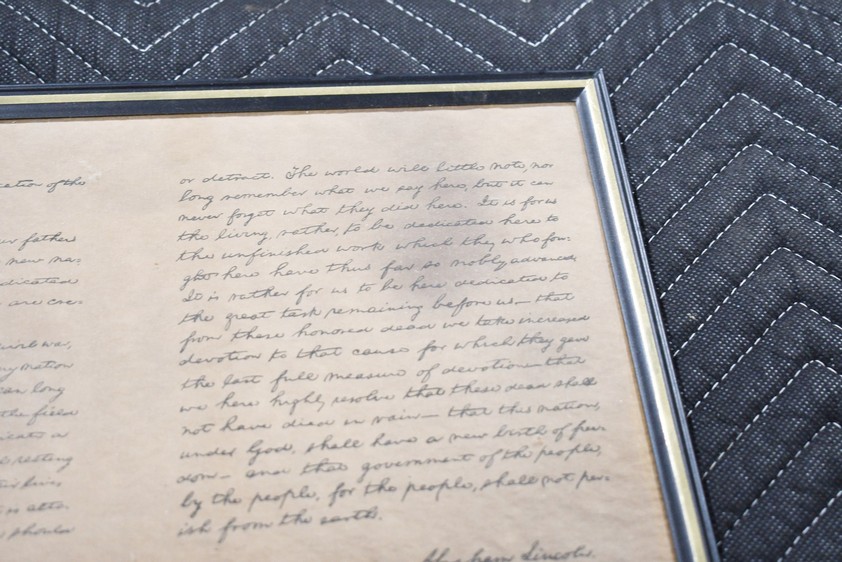 cation of the
father
new na-
dicated
are cre-
civil war,
any nation
can long
the field
dicate a
resting
their lives
should
or detract. The world will little note, nor
long remember what we say here, but it can
never forget what they did here. It is for us
the living, rather, to be dedicated here to
the unfinished work which they who fou-
ght here have thus far so nobly advanced.
It is rather for us to be here dedicated to
the great task remaining before us— that
from these honored dead we take increased
devotion to that cause for which they gave
the last full measure of devotion— that
we here highly resolve that these dead shall
not have died in vain— that this nation,
under God, shall have a new birth of free-
dom— and that government of the people,
by the people, for the people, shall not per-
ish from the earth.
Abraham Lincoln.